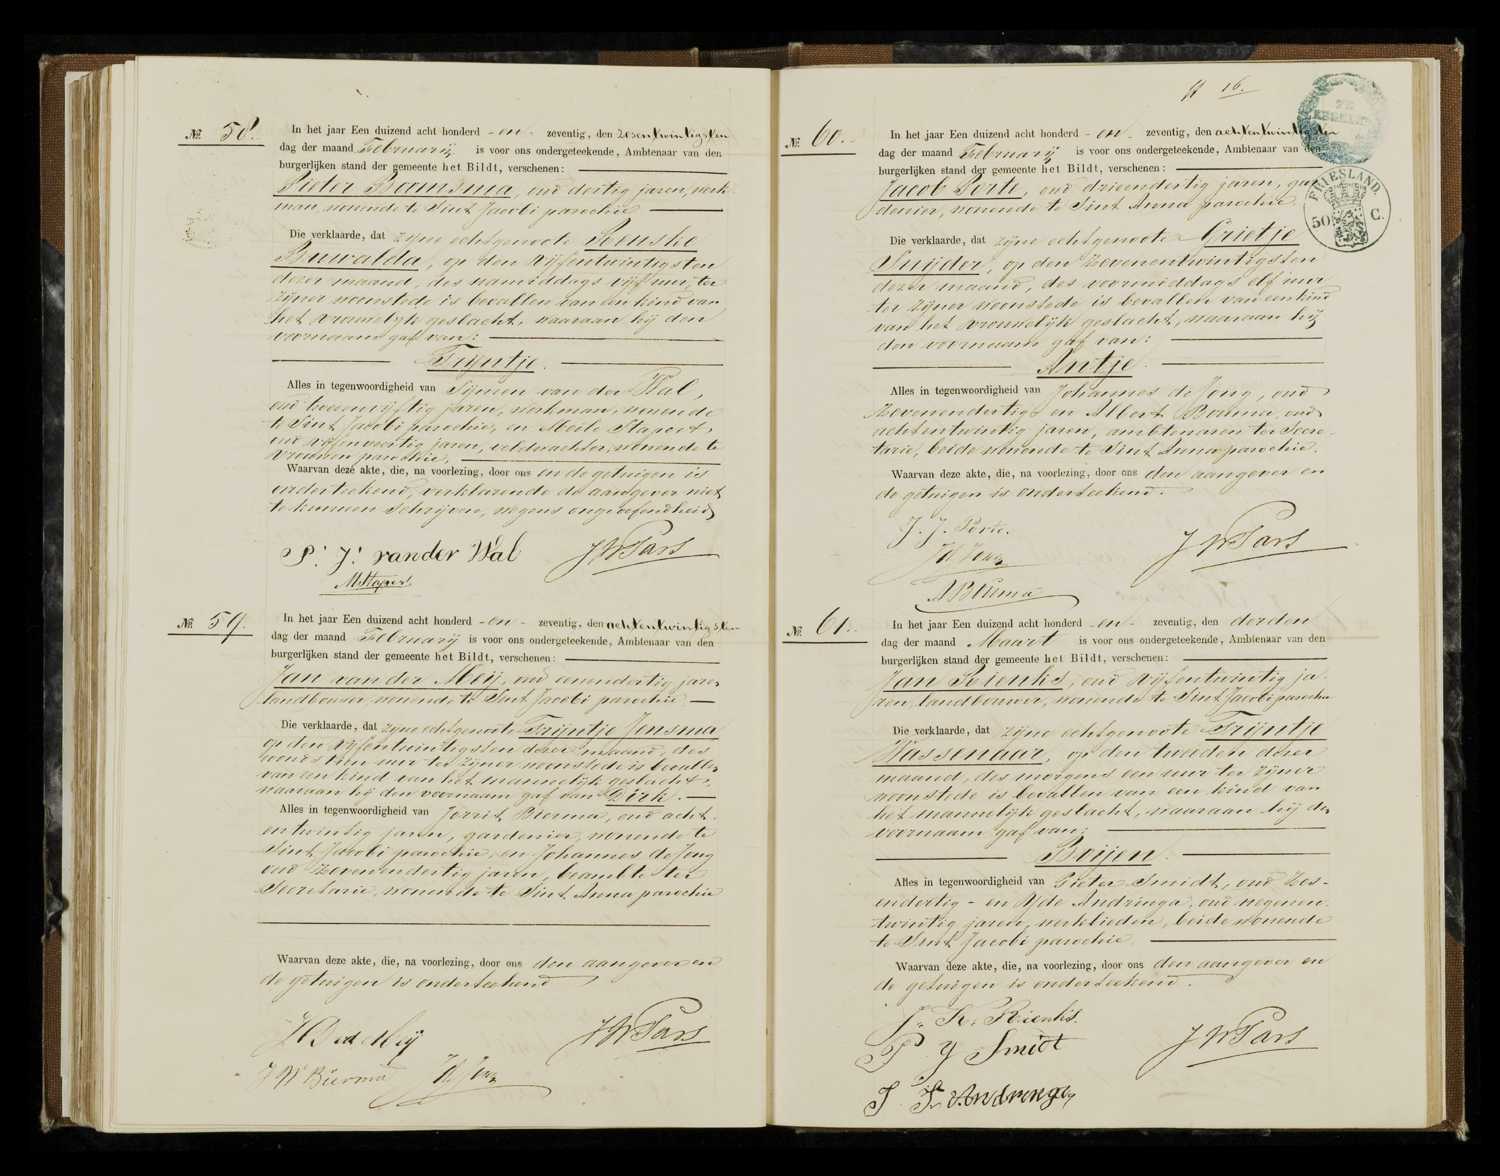 Nº. 58.
In het jaar Een duizend acht honderd - en - zeventig, den zesentwintigsten
dag der maand Februarij is voor ons ondergeteekende, Ambtenaar van den
burgerlijken stand der gemeente het Bildt, verschenen:
Pieter Boomsma, oud dertig jaren, werk-
man, wonende te Sint Jacobi parochie
Die verklaarde, dat zijne echtgenoote
Buwalda, op den vijfentwintigsten
dezer maand, des namiddags vijf uur, ter
zijner woonstede is bevallen van een kind van
het vrouwelijk geslacht, waaraan hij den
voornaam gaf van:
Trijntje.
Alles in tegenwoordigheid van Sijmen van der Wal,
oud jaren, werkman, wonende
te Sint Jacobi parochie, en Meile Stapert,
oud vijfenveertig jaren, veldwachter, wonende te
Vrouwen parochie,
Waarvan deze akte, die, na voorlezing, door ons en de getuigen is
onderteekend, verklarende de aangever niet
te kunnen schrijven, wegens ongeoefendheid
S. J. van der Wal JWPars
MStapert
Nº. 59.
In het jaar Een duizend acht honderd - en - zeventig, den achtentwintigsten
dag der maand Februarij is voor ons ondergeteekende, Ambtenaar van den
burgerlijken stand der gemeente het Bildt, verschenen:
Jan van der Meij, oud eenendertig jaren
landbouwer, wonende te Sint Jacobi parochie
Die verklaarde, dat zijne echtgenoote Trijntje Jensma
op den vijfentwintigsten dezer maand, des
uur ter zijner woonstede is bevallen
van een kind van het mannelijk geslacht,
waaraan hij den voornaam gaf van Dirk.
Alles in tegenwoordigheid van Jorrit Bierma, oud acht-
entwintig jaren, gardenier, wonende te
Sint Jacobi parochie, en Johannes de Jong
oud zevenendertig jaren, beambte ter
Secretarie, wonende te Sint Anna parochie
Waarvan deze akte, die, na voorlezing, door ons den aangever en
de getuigen is onderteekend
JWPars
Bierma
16.
ZEGEL
FRIESLAND
50 C.
Nº. 60.
In het jaar Een duizend acht honderd - en - zeventig, den achtentwintigsten
dag der maand Februarij is voor ons ondergeteekende, Ambtenaar van den
burgerlijken stand der gemeente het Bildt, verschenen:
Jacob Porte, oud drieendertig jaren, gar-
denier, wonende te Sint Anna parochie.
Die verklaarde, dat zijne echtgenoote Grietje
Snijder, op den zevenentwintigsten
dezer maand, des voormiddags elf uur
ter zijner woonstede is bevallen van een kind
van het vrouwelijk geslacht, waaraan hij
den voornaam gaf van:
Antje.
Alles in tegenwoordigheid van Johannes de Jong, oud
zevenendertig - en Albert Bouma, oud
achtentwintig jaren, ambtenaren ter Secre-
tarie, beide wonende te Sint Anna parochie.
Waarvan deze akte, die, na voorlezing, door ons den aangever en
de getuigen is onderteekend.
J. J. Porte.
JWPars
ABouma
Nº. 61.
In het jaar Een duizend acht honderd - en - zeventig, den derden
dag der maand Maart is voor ons ondergeteekende, Ambtenaar van den
burgerlijken stand der gemeente het Bildt, verschenen:
Jan Rienks, oud vijfentwintig ja-
ren, landbouwer, wonende te Sint Jacobi parochie
Die verklaarde, dat zijne echtgenoote Trijntje
Wassenaar, op den tweeden dezer
maand, des morgens een uur ter zijner
woonstede is bevallen van een kind van
het mannelijk geslacht, waaraan hij den
voornaam gaf van:
Boijen.
Alles in tegenwoordigheid van Pieter Smidt, oud zes-
endertig - en Andringa, oud negenen-
twintig jaren, werklieden, beide wonende
te Sint Jacobi parochie
Waarvan deze akte, die, na voorlezing, door ons den aangever en
de getuigen is onderteekend.
J. K. Rienks.
P Y Smidt JWPars
Andringa